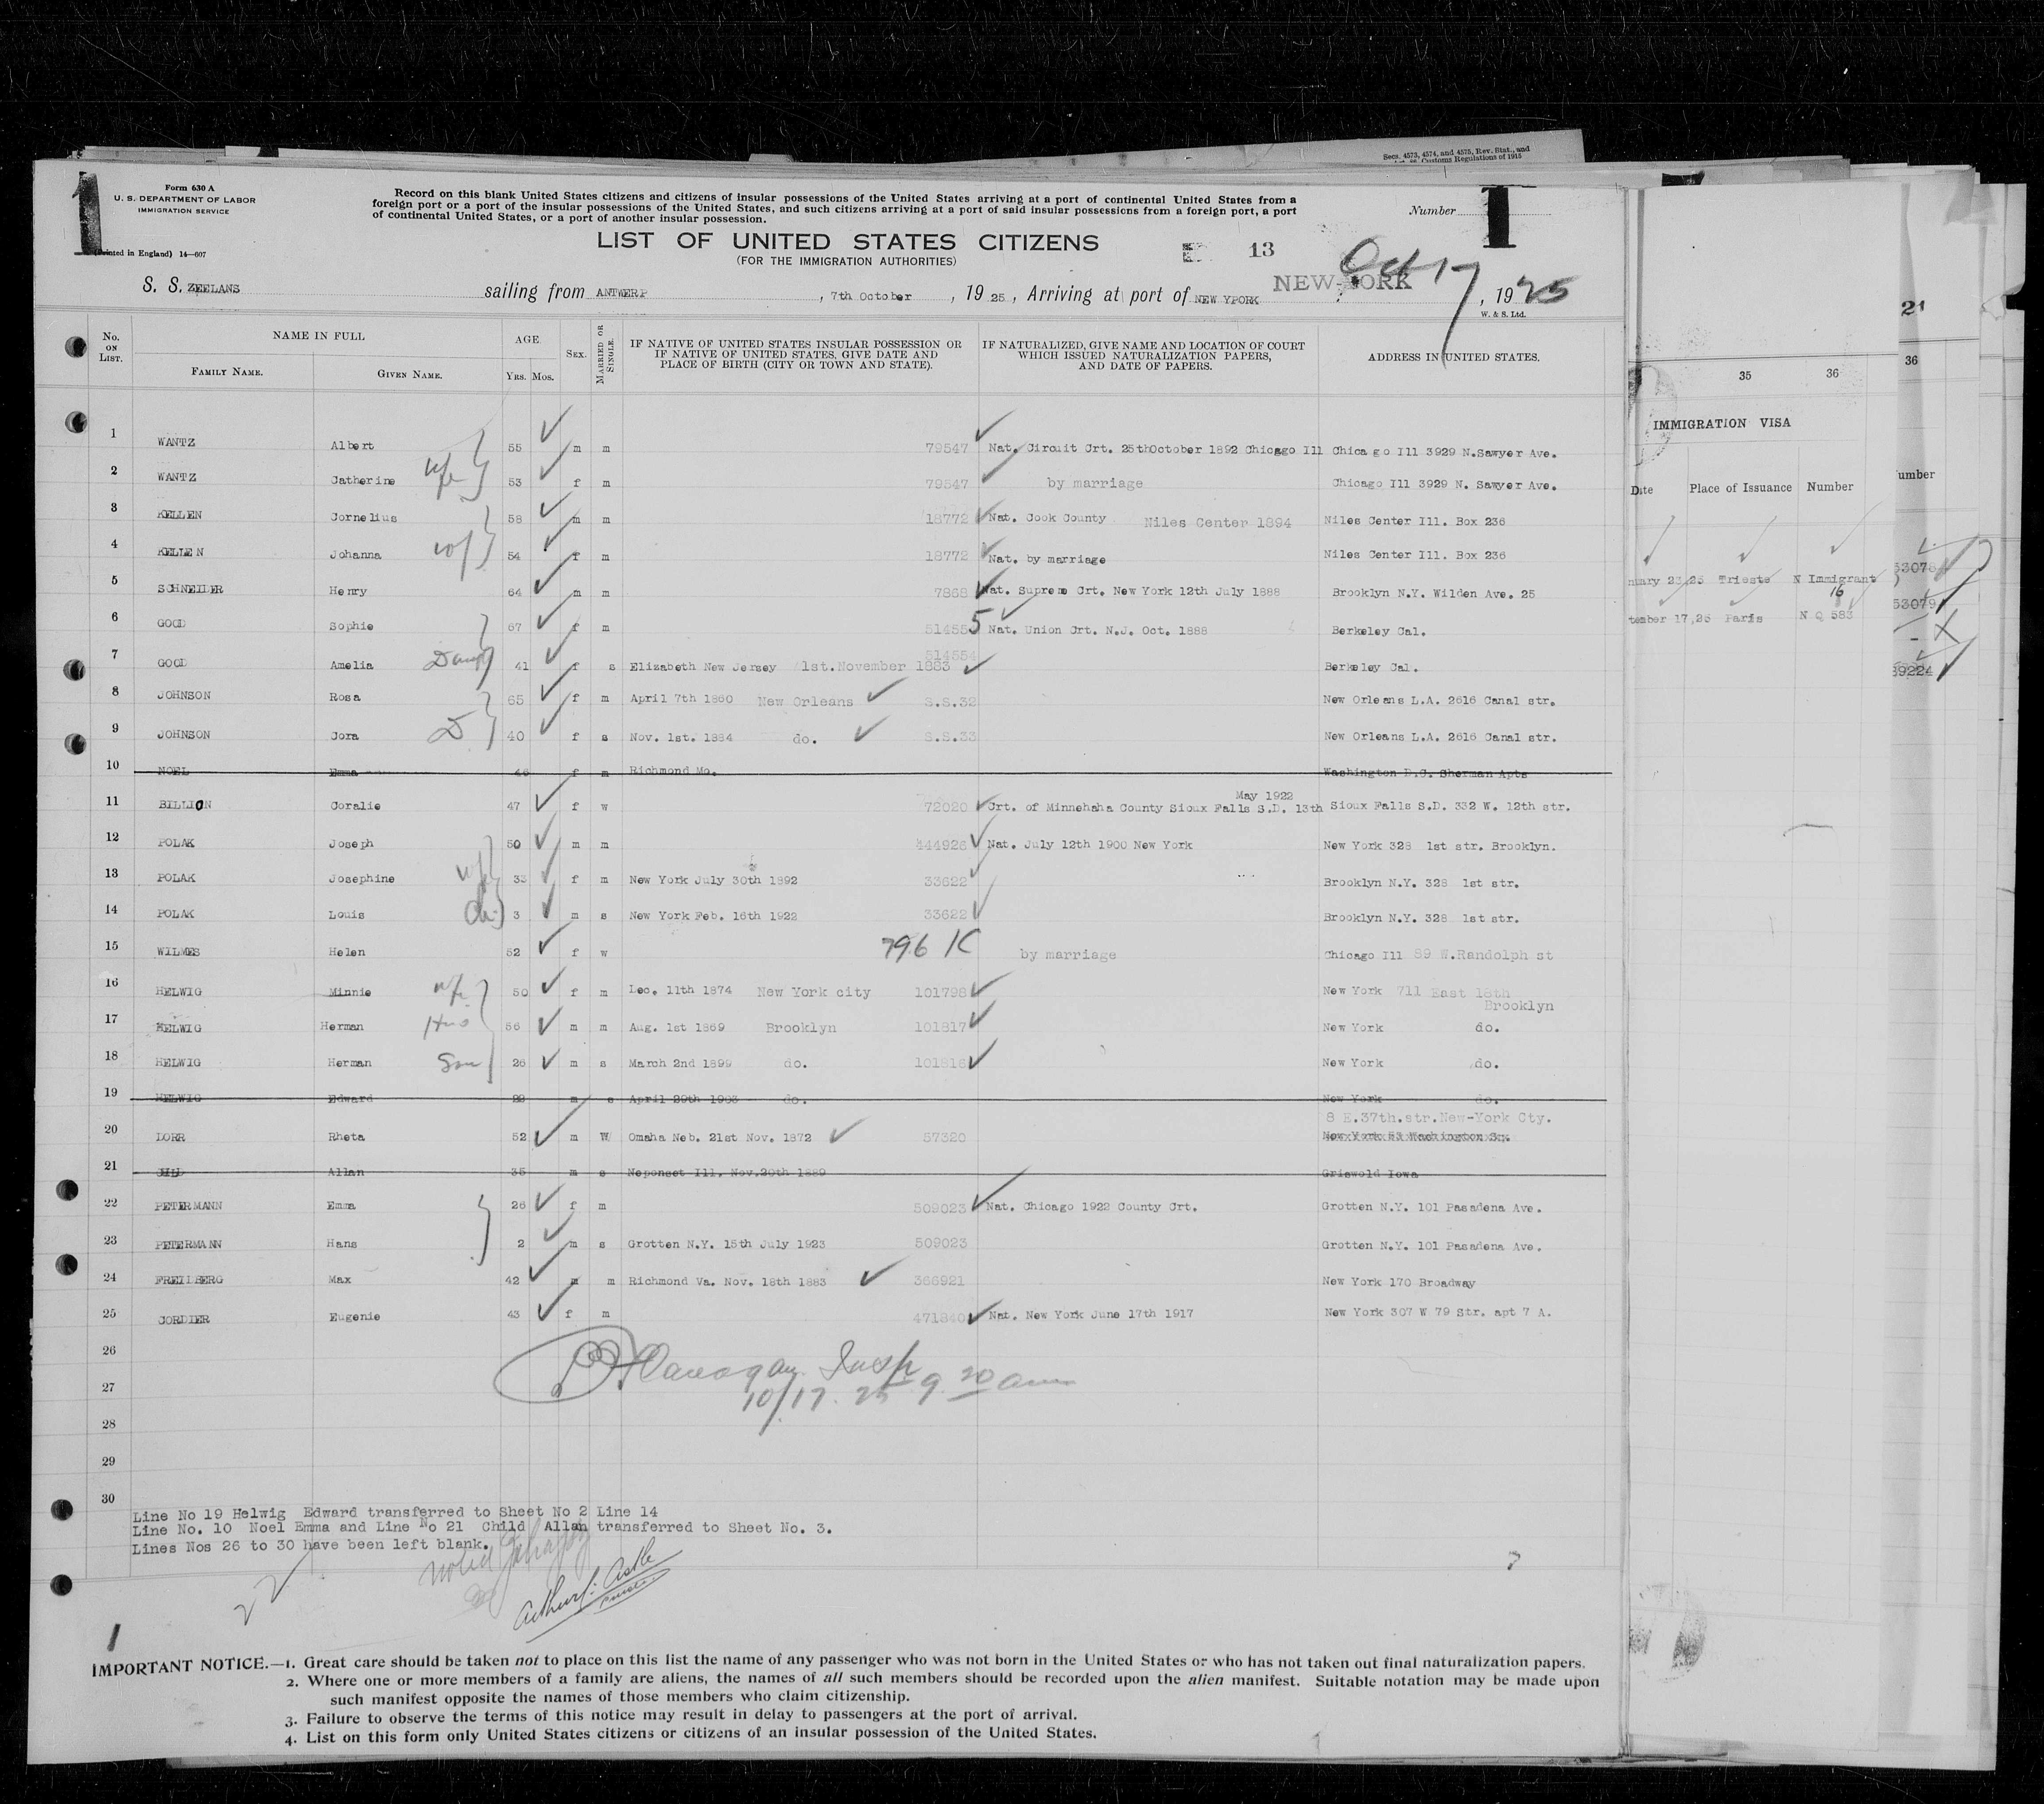 Secs. 4573, 4574, and 4575, Rev. Stat., and
Customs Regulations of 1915
1
Form 630 A
U. S. DEPARTMENT OF LABOR
IMMIGRATION SERVICE
(Printed in England) 14—607
Record on this blank United States citizens and citizens of insular possessions of the United States arriving at a port of continental United States from a
foreign port or a port of the insular possessions of the United States, and such citizens arriving at a port of said insular possessions from a foreign port, a port
of continental United States, or a port of another insular possession.
Number 1
LIST OF UNITED STATES CITIZENS
(FOR THE IMMIGRATION AUTHORITIES)
13
S. S. ZEELANS sailing from ANTWERP, 7th October, 19 25, Arriving at port of NEW YPORK NEW-YORK Oct 17, 1925
W. & S. Ltd.
No. ON LIST. NAME IN FULL FAMILY NAME. GIVEN NAME. AGE. YRS. MOS. SEX. MARRIED OR SINGLE. IF NATIVE OF UNITED STATES INSULAR POSSESSION OR IF NATIVE OF UNITED STATES, GIVE DATE AND PLACE OF BIRTH (CITY OR TOWN AND STATE). IF NATURALIZED, GIVE NAME AND LOCATION OF COURT WHICH ISSUED NATURALIZATION PAPERS, AND DATE OF PAPERS. ADDRESS IN UNITED STATES.
1 WANTZ Albert 55 m m 79547 Nat. Circuit Crt. 25thOctober 1892 Chicago Ill Chica go Ill 3929 N.Sawyer Ave.
2 WANTZ Catherine wfe 53 f m 79547 by marriage Chicago Ill 3929 N. Sawyer Ave.
3 KELLEN Cornelius 58 m m 18772 Nat. Cook County Niles Center 1894 Niles Center Ill. Box 236
4 KELLE N Johanna wf 54 f m 18772 Nat. by marriage Niles Center Ill. Box 236
5 SCHNEIDER Henry 64 m m 7868 Nat. Supreme Crt. New York 12th July 1888 Brooklyn N.Y. Wilden Ave. 25
6 GOOD Sophie 67 f m 514555 Nat. Union Crt. N.J. Oct. 1888 Berkeley Cal.
7 GOOD Amelia Daug 41 f s Elizabeth New Jersey 1st.November 1883 514554 Berkeley Cal.
8 JOHNSON Rosa 65 f m April 7th 1860 New Orleans S.S.32 New Orleans L.A. 2616 Canal str.
9 JOHNSON Cora D 40 f s Nov. 1st. 1884 do. S.S.33 New Orleans L.A. 2616 Canal str.
10 NOEL Emma 46 f m Richmond Mo. Washington D.C. Sherman Apts
11 BILLION Coralie 47 f w 72020 Crt. of Minnehaha County Sioux Falls S.D. 13th May 1922 Sioux Falls S.D. 332 W. 12th str.
12 POLAK Joseph 50 m m 444926 Nat. July 12th 1900 New York New York 328 1st str. Brooklyn.
13 POLAK Josephine wf 33 f m New York July 30th 1892 33622 Brooklyn N.Y. 328 1st str.
14 POLAK Louis ch 3 m s New York Feb. 16th 1922 33622 Brooklyn N.Y. 328 1st str.
15 WILMES Helen 52 f w 796 K by marriage Chicago Ill 89 W.Randolph st
16 HELWIG Minnie wfe 50 f m Dec. 11th 1874 New York city 101798 New York 711 East 18th Brooklyn
17 HELWIG Herman Hus 56 m m Aug. 1st 1869 Brooklyn 101817 New York do.
18 HELWIG Herman Son 26 m s March 2nd 1899 do. 101816 New York do.
19 HELWIG Edward 22 m s April 29th 1903 do. New York do.
8 E.37th.str.New-York Cty.
20 DORR Rheta 52 m W Omaha Neb. 21st Nov. 1872 57320 New York 53 Washington Sq.
21 CHILD Allan 35 m s Neponset Ill. Nov.20th 1889 Griswold Iowa
22 PETERMANN Emma 26 f m 509023 Nat. Chicago 1922 County Crt. Grotten N.Y. 101 Pasadena Ave.
23 PETERMANN Hans 2 m s Grotten N.Y. 15th July 1923 509023 Grotten N.Y. 101 Pasadena Ave.
24 FREILBERG Max 42 m m Richmond Va. Nov. 18th 1883 366921 New York 170 Broadway
25 CORDIER Eugenie 43 f m 471840 Nat. New York June 17th 1917 New York 307 W 79 Str. apt 7 A.
26 Insp
27 10/17 25 9 20 am
28
29
30
Line No 19 Helwig Edward transferred to Sheet No 2 Line 14
Line No. 10 Noel Emma and Line No 21 Child Allan transferred to Sheet No. 3.
Lines Nos 26 to 30 have been left blank.
1
IMPORTANT NOTICE.—1. Great care should be taken not to place on this list the name of any passenger who was not born in the United States or who has not taken out final naturalization papers.
2. Where one or more members of a family are aliens, the names of all such members should be recorded upon the alien manifest. Suitable notation may be made upon
such manifest opposite the names of those members who claim citizenship.
3. Failure to observe the terms of this notice may result in delay to passengers at the port of arrival.
4. List on this form only United States citizens or citizens of an insular possession of the United States.
21
35 36 36
IMMIGRATION VISA
Date Place of Issuance Number
23,25 Trieste N Immigrant 16
17,25 Paris N Q 583
53078
53079
39224